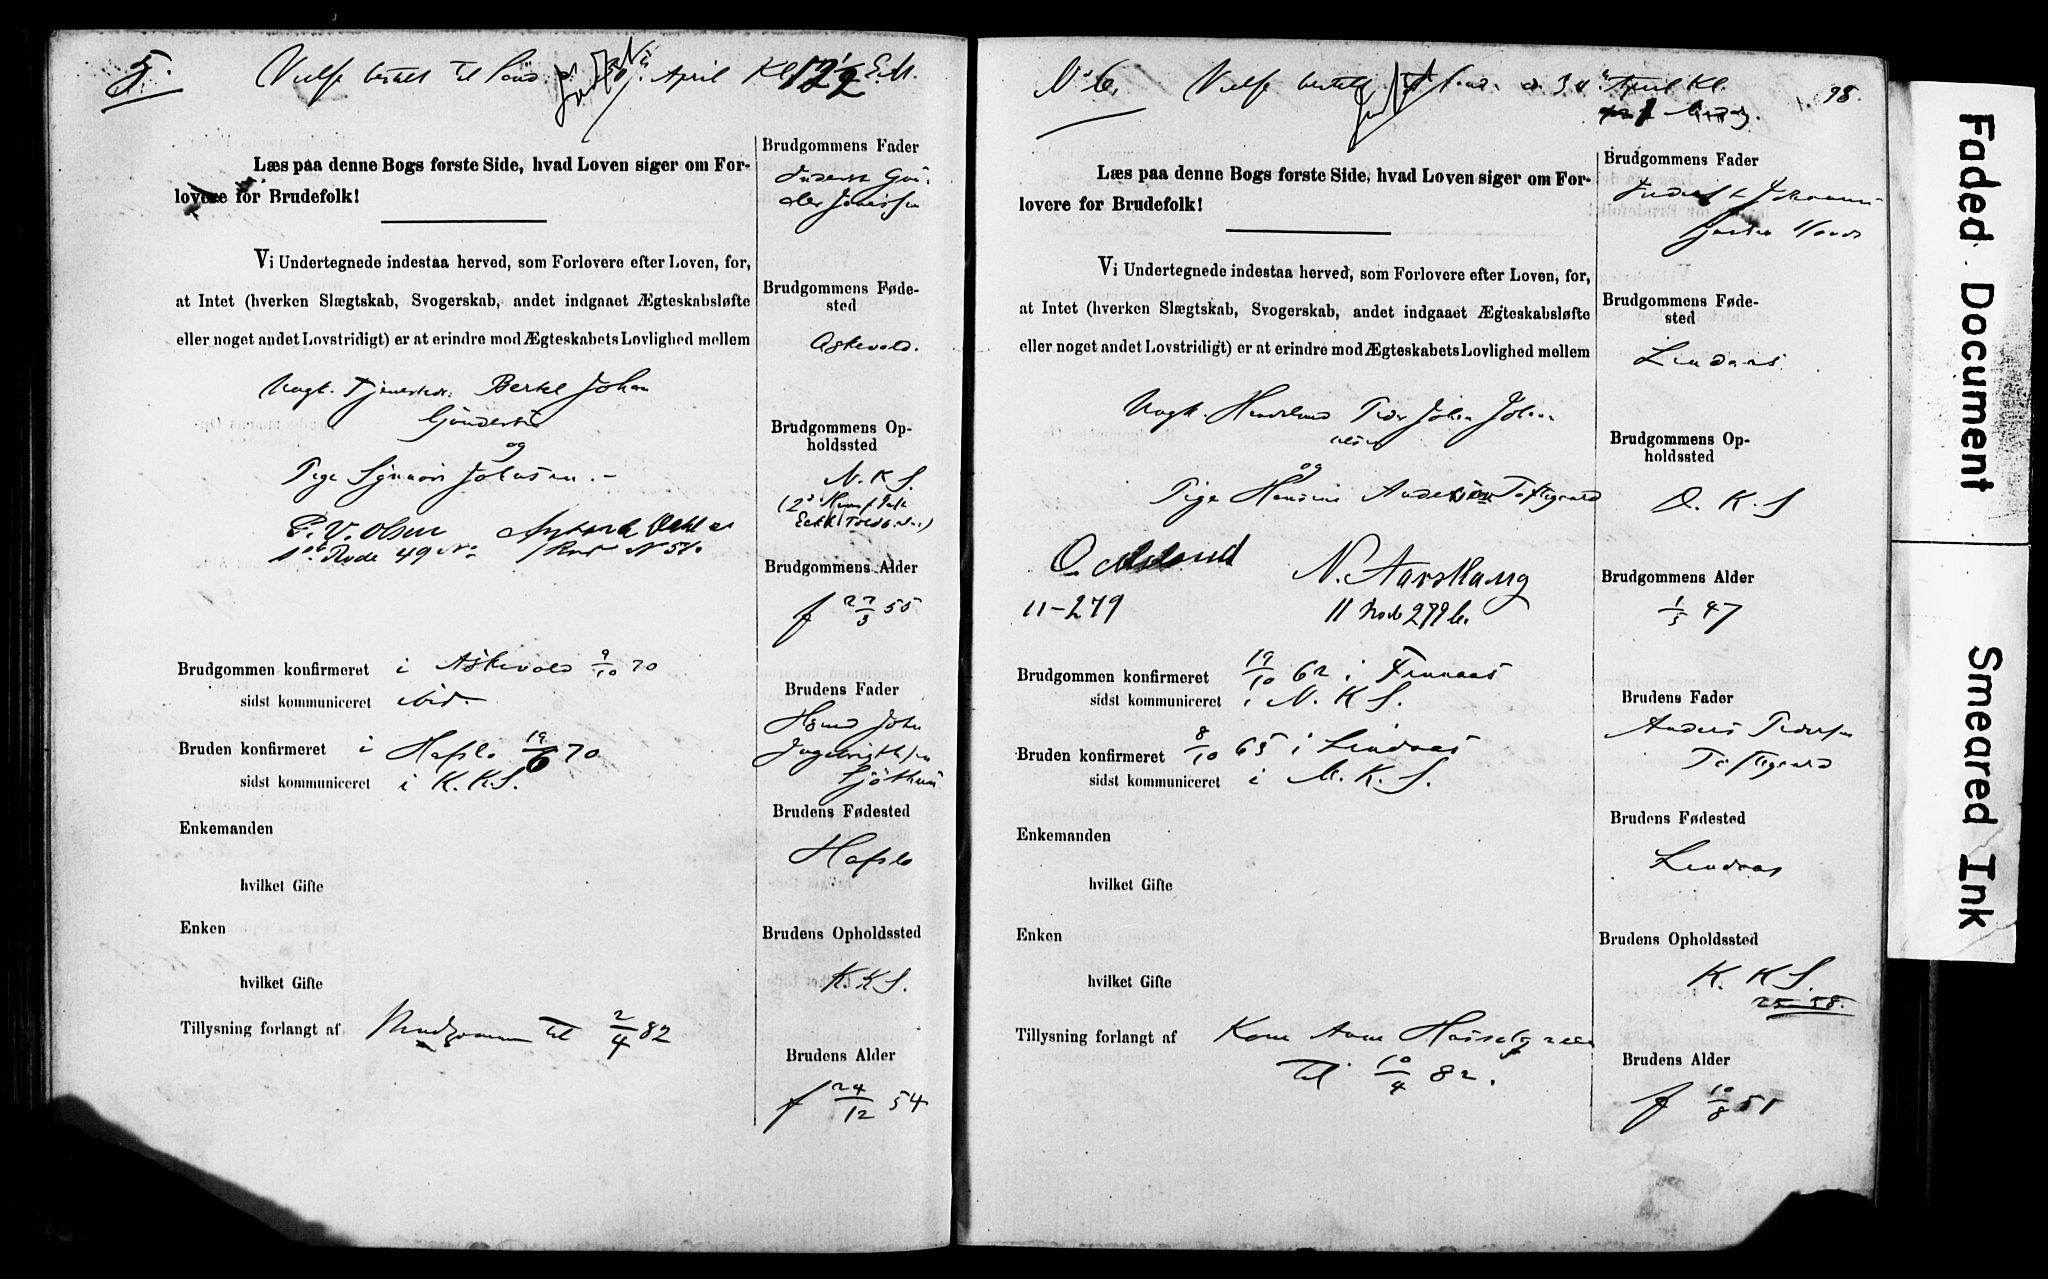 5.
Vielse bestilt til April Kl 12½ E.M.
Læs paa denne Bogs første Side, hvad Loven siger om For-
lovere for Brudefolk!
Vi Undertegnede indestaa herved, som Forlovere efter Loven, for,
at Intet (hverken Slægtskab, Svogerskab, andet indgaaet Ægteskabsløfte
eller noget andet Lovstridigt) er at erindre mod Ægteskabets Lovlighed mellem
Ungk. Bertel Johan
og
Pige Johnsen.
P. V. Olsen
Rode 49
Brudgommen konfirmeret i Askevold 9/10 70
sidst kommuniceret ibid.
Bruden konfirmeret i Hafslo 19/6 70
sidst kommuniceret i K.K.S.
Enkemanden
hvilket Gifte
Enken
hvilket Gifte
Tillysning forlangt af Brudgommen til 2/4 82
Brudgommens Fader
Brudgommens Føde-
sted
Askevold.
Brudgommens Op-
holdssted
N.K.S.
Brudgommens Alder
f 22/3 55
Brudens Fader
John
Brudens Fødested
Hafslo
Brudens Opholdssted
K.K.S.
Brudens Alder
f 24/12 54
No 6.
Vielse bestilt April Kl.
98.
Læs paa denne Bogs første Side, hvad Loven siger om For-
lovere for Brudefolk!
Vi Undertegnede indestaa herved, som Forlovere efter Loven, for,
at Intet (hverken Slægtskab, Svogerskab, andet indgaaet Ægteskabsløfte
eller noget andet Lovstridigt) er at erindre mod Ægteskabets Lovlighed mellem
Ungk. Peder Johan Johan-
nesen
og
Pige Hansine Andersen Toftegaard
N. Aarskaug
11-279
11 Rode 279 b.
Brudgommen konfirmeret 19/10 62 i Finnaas
sidst kommuniceret i N.K.S.
Bruden konfirmeret 8/10 65 i Lindaas
sidst kommuniceret i N.K.S.
Enkemanden
hvilket Gifte
Enken
hvilket Gifte
Tillysning forlangt af Kone Anne
til 10/4 82.
Brudgommens Fader
Brudgommens Føde-
sted
Lindaas
Brudgommens Op-
holdssted
D.K.S
Brudgommens Alder
1/5 47
Brudens Fader
Anders Pedersen
Toftegaard
Brudens Fødested
Lindaas
Brudens Opholdssted
K.K.S.
25-58.
Brudens Alder
f 10/8 51
Faded Document
Smeared Ink